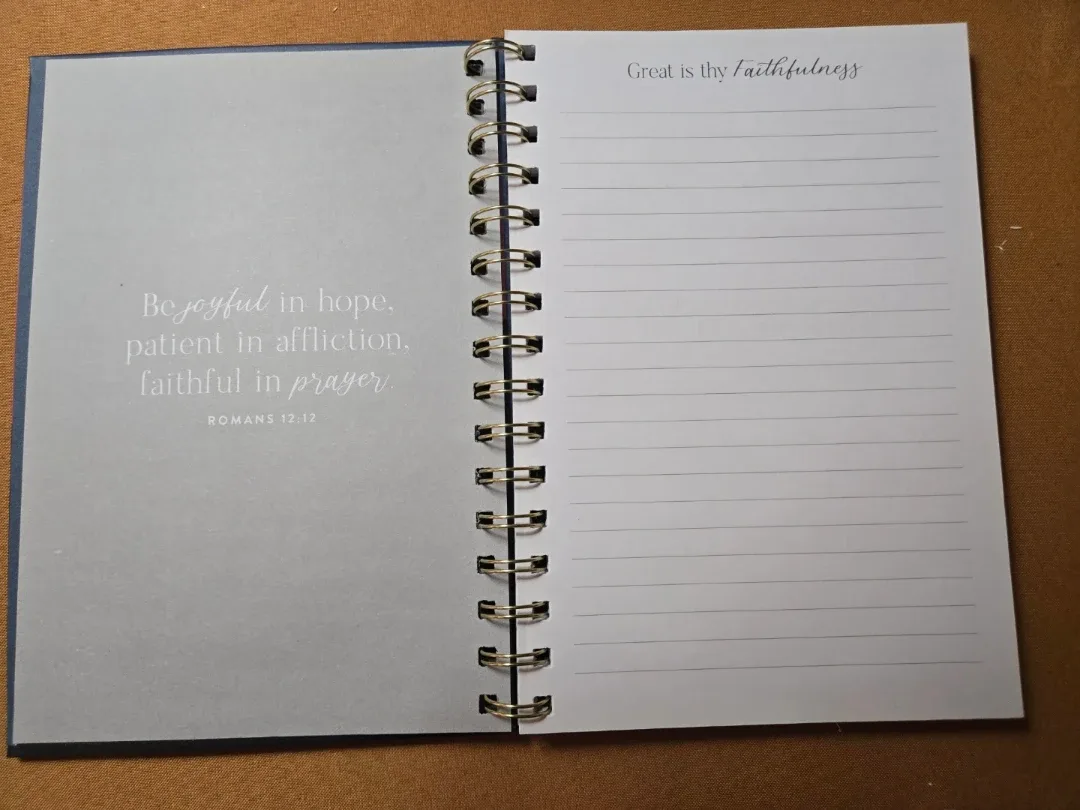 Be joyful in hope,
patient in affliction,
faithful in prayer.
ROMANS 12:12
Great is thy Faithfulness